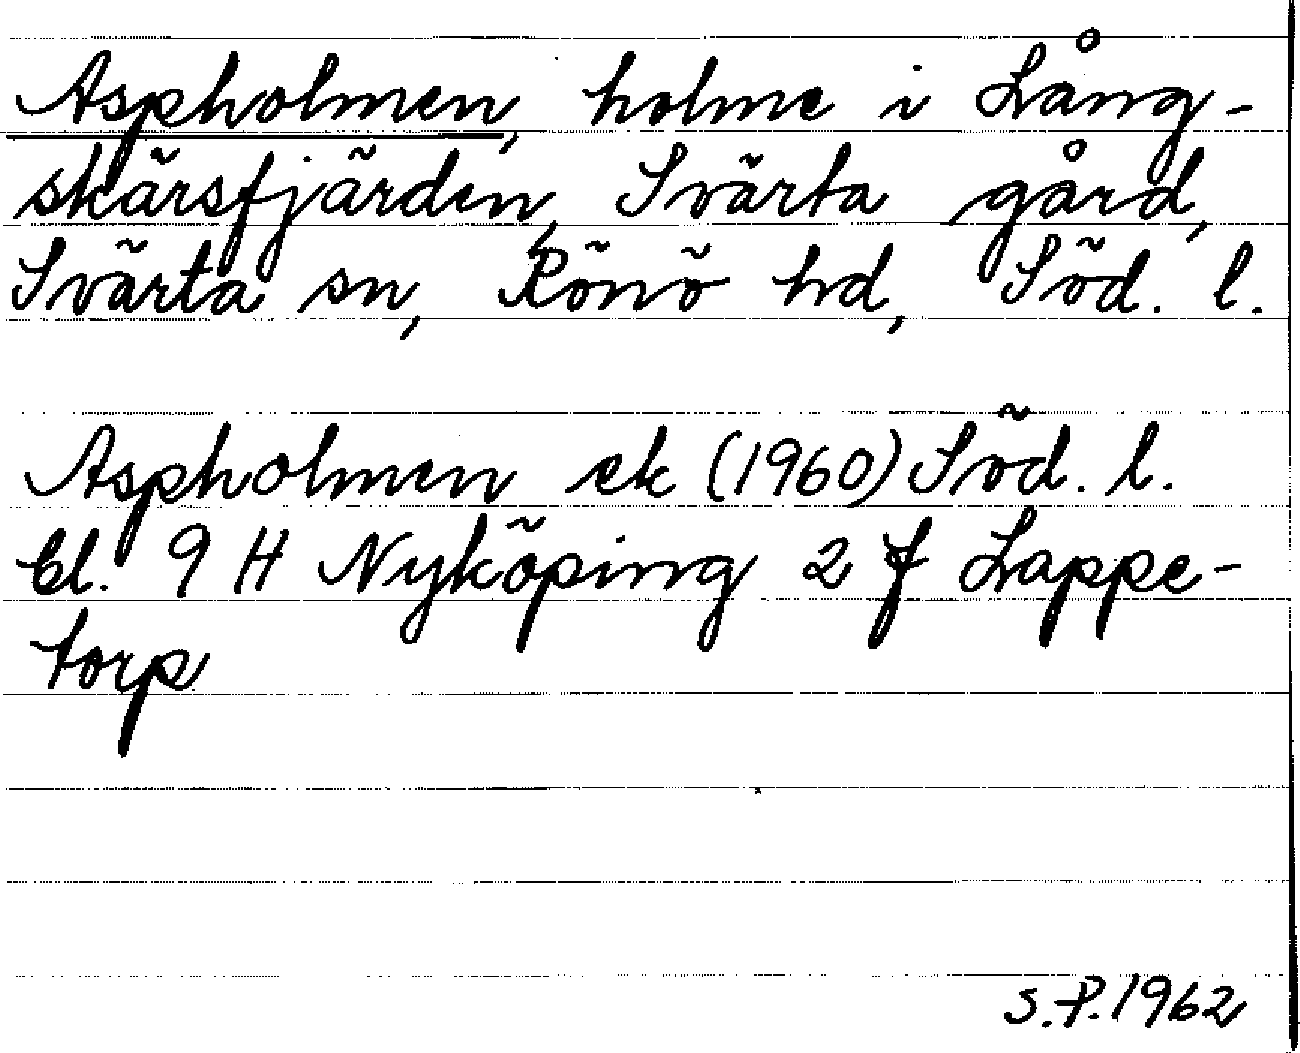 Aspholmen, holme i Lång-
skärsfjärden, Svärta gård,
Svärta sn, Rönö hd, Söd. l.
Aspholmen ek (1960) Söd. l.
bl. 9 H Nyköping 2 f Lappe-
torp
S.P. 1962